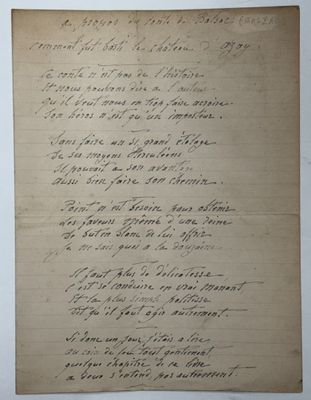 a propos du conte de Balzac BALZAC
Comment fut bâti le château d'Azay.
Ce conte n'est pas de l'histoire
Et nous pouvons dire a l'auteur
Qu'il veut nous en trop faire accroire
Son héros n'est qu'un imposteur.
Sans faire un si grand étalage
De ses moyens Herculéens
Il pouvait a son avantage
Aussi bien faire son chemin.
Point n'est besoin pour obtenir
Les faveurs d'une reine
De but en blanc de lui offrir
Je ne sais quoi a la douzaine
Il faut plus de délicatesse
C'est se conduire en vrai manant
Et la plus simple politesse
Dit qu'il faut agir autrement.
Si donc un jour j'étais a lire
au coin du feu tout gentiment
quelque chapitre de ce livre
a deux s'entend, pas autrement